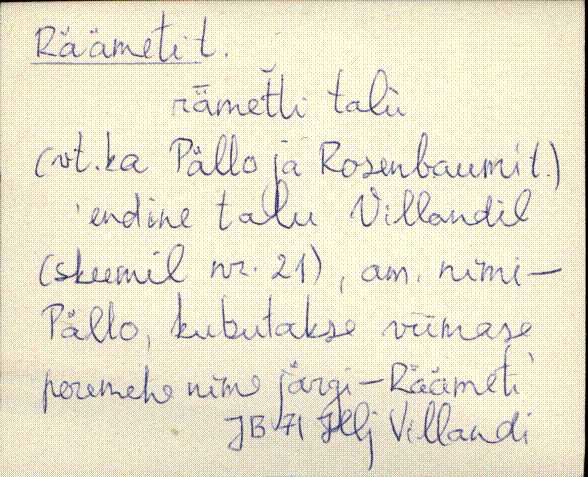 Räämeti t.
rä̆met̆ti talu
(vt. ka Pällo ja Rosenbaumi t.)
endine talu Villandil
(skeemil nr. 21), am. nimi –
Pällo, kutsutakse viimase
peremehe nime järgi – Räämeti
JB 71 Hlj Villandi